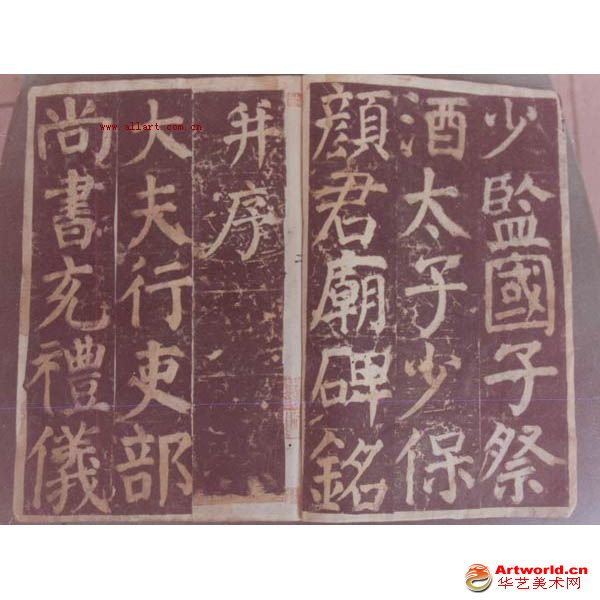 少監國子祭
酒太子少保
顏君廟碑銘
并序
大夫行吏部
尚書充禮儀
www.allart.com.cn
Artworld.cn
华艺美术网